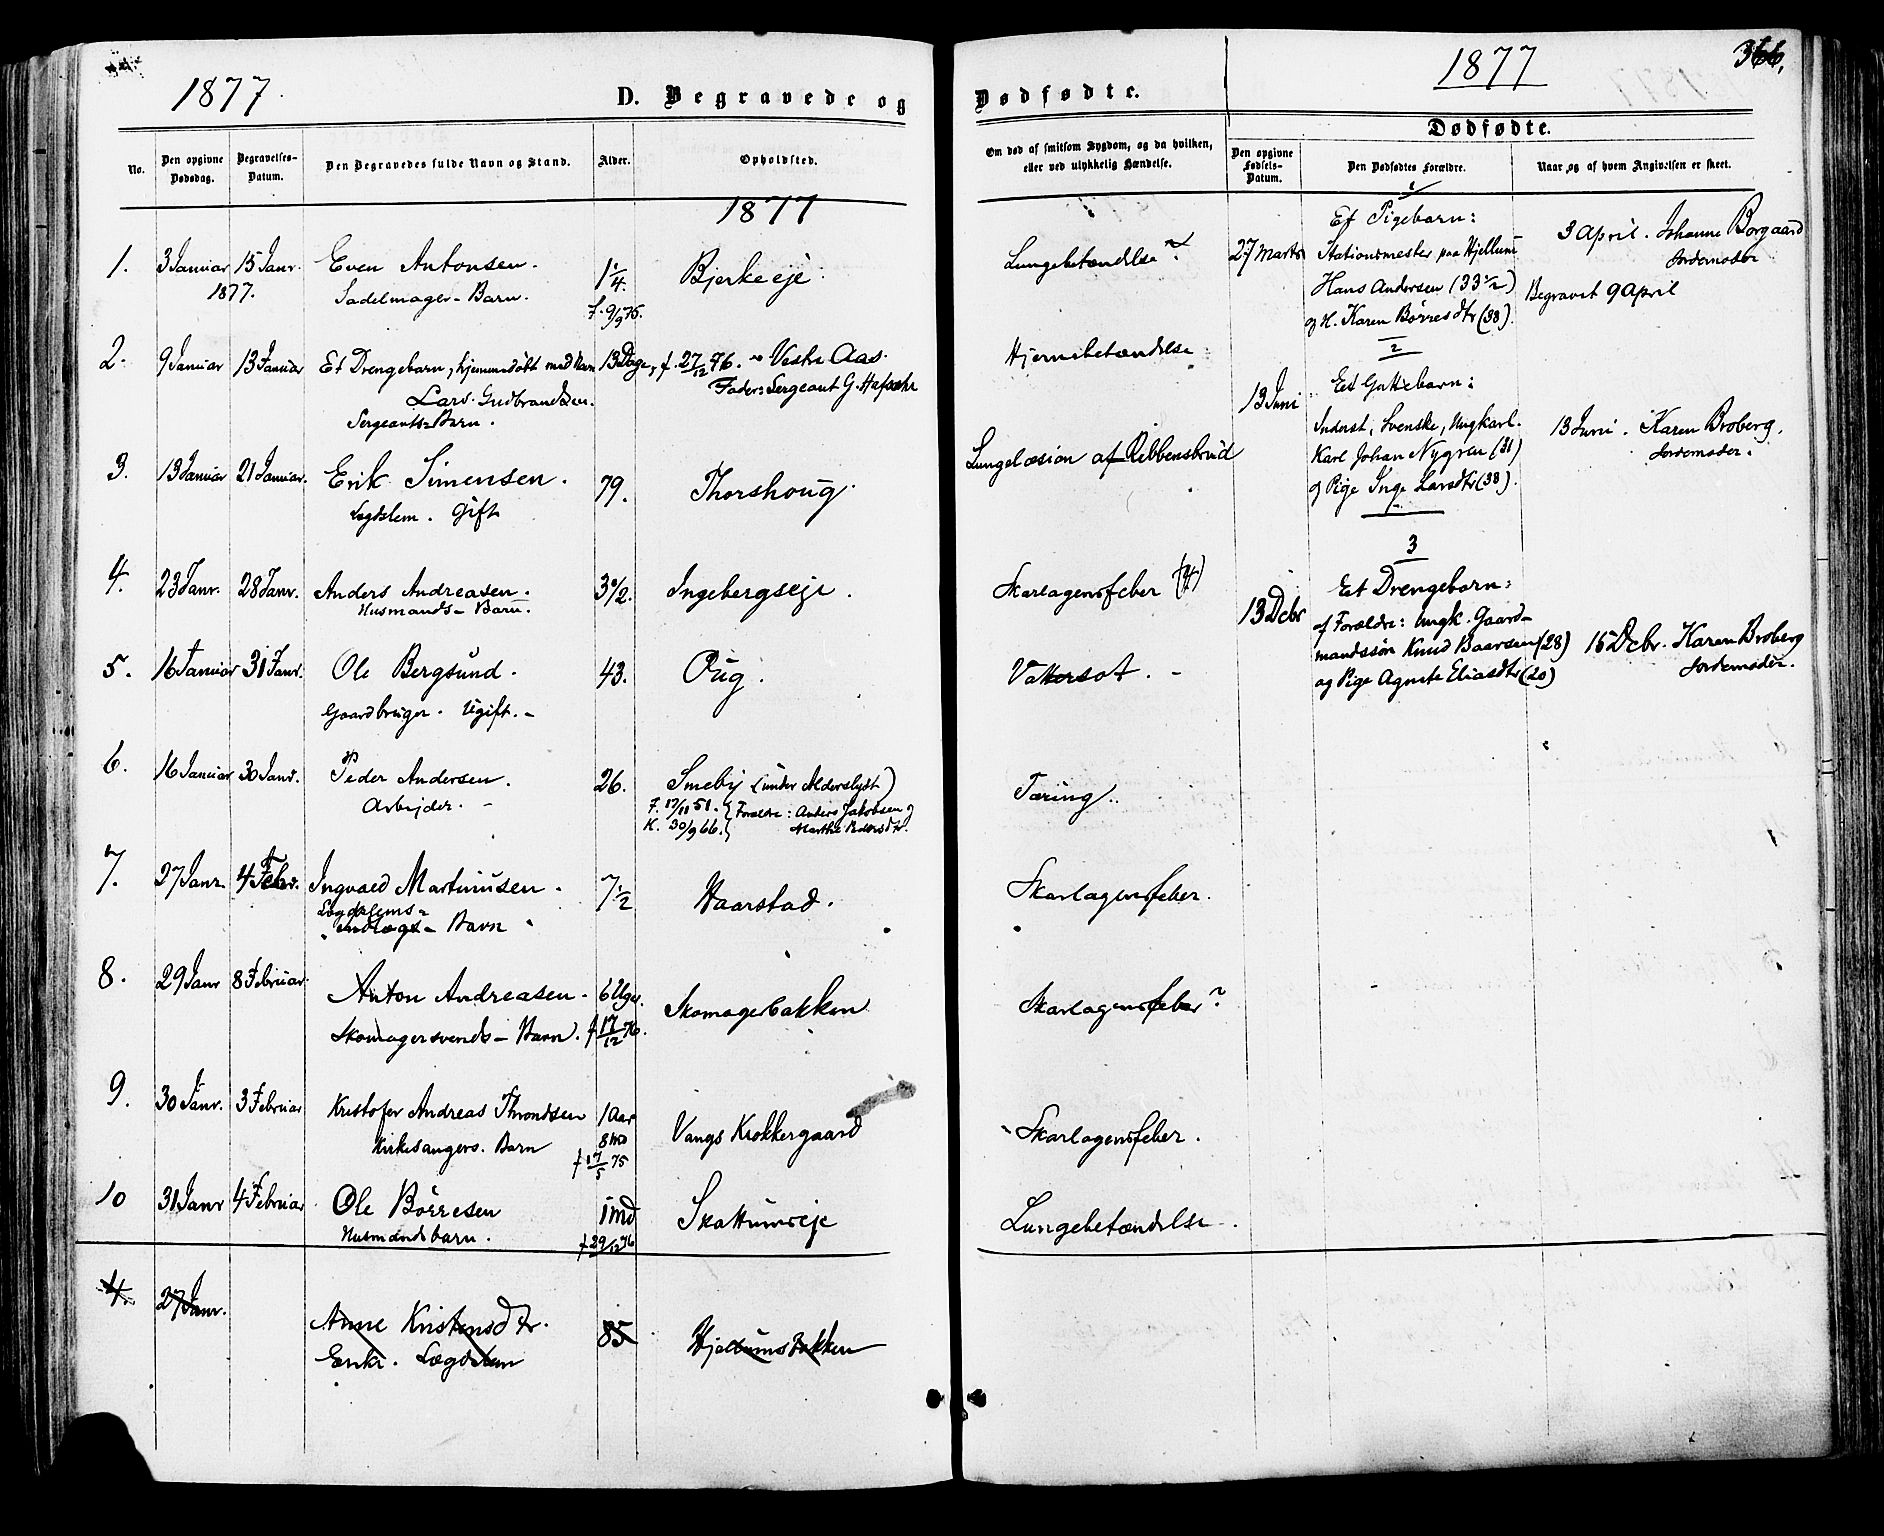 1877.
D. Begravede og
No.
Den opgivne Dødsdag.
Begravelses-Datum.
Den Begravedes fulde Navn og Stand.
Alder.
Opholdsted.
1877
1. 3 Januar 1877. 15 Janr. Even Antonsen. 1 1/4 Bjerkeeje
Sadelmager-Barn. f. 9/9 75.
2. 9 Januar 13 Januar Et Drengebarn, hjemmedøbt med Navn 13 Dage, f. 27/12 76. Vestre Aas.
Lars Gudbrandsen. Fader: Sergeant G.
Sergeants-Barn.
3. 13 Januar 21 Januar. Erik Simensen. 79. Thorshoug.
Lægdslem. Gift
4. 23 Janr. 28 Janr. Anders Andreasen. 3 1/2. Ingebergseje.
Husmands-Barn.
5. 16 Januar 31 Janr. Ole Bergsund. 43. Oug.
Gaardbruger. Ugift.-
6. 16 Januar 30 Janr. Peder Andersen. 26. Smeby (under Alderslyst)
Arbejder. - F. 17/11 51. Forældre: Anders Jakobsen og
K. 30/9 66. Marthe Pedersdtr.
7. 27 Janr. 4 Febr. Ingvald Martinusen. 7 1/2 Haarstad.
Lægdslems-
Indlægs-Barn
8. 29 Janr 8 Februar Anton Andreasen. 6 Uger. Skomagerbakken
Skomagersvends-Barn. f 17/12 76.
9. 30 Janr. 3 Februar Kristofer Andreas Throndsen 1 Aar Vangs Klokkergaard
Kirkesangers. Barn 8 Md
f 17/5 75
10 31 Janr 4 Februar Ole Börresen 1 Md Skattumseje
Husmandsbarn. f 29/12 76
4. 27 Janr. Anne Kristensdtr. 85 Hjellumsbakken
Enke. Lægdslem
Dødfødte.
1877
366,
Om død af smitsom Sygdom, og da hvilken,
eller ved ulykkelig Hændelse.
Dødfødte.
Den opgivne Fødsels-Datum.
Den Dødfødtes Forældre.
Naar og af hvem Angivelsen er skeet.
Lungebetændelse?
Hjernebetændelse
Lungelæsion af Ribbensbrud
Skarlagensfeber (4)
Vattersot. -
Tæring..
Skarlagensfeber.
Skarlagensfeber?
Skarlagensfeber.
Lungebetændelse.
1
27 Marts Et Pigebarn: 3 April. Johanne Borgaard
Stationsmester paa Hjellum Jordemoder
Hans Andersen (33 1/2) Begravet 9 April
og H. Karen Börresdtr (38).
2
13 Juni Et Guttebarn:
Inderst, Svenske, Ungkarl. 13 Juni. Karen Broberg,
Karl Johan Nygren (31) Jordemoder.
og Pige Inge Larsdtr (38).
3
13 Debr Et Drengebarn:
af Forældre: Ungk. Gaard-
mandssön Knud Baarsen (28) 15 Debr. Karen Broberg
og Pige Agnete Eliasdtr (20) Jordemoder.